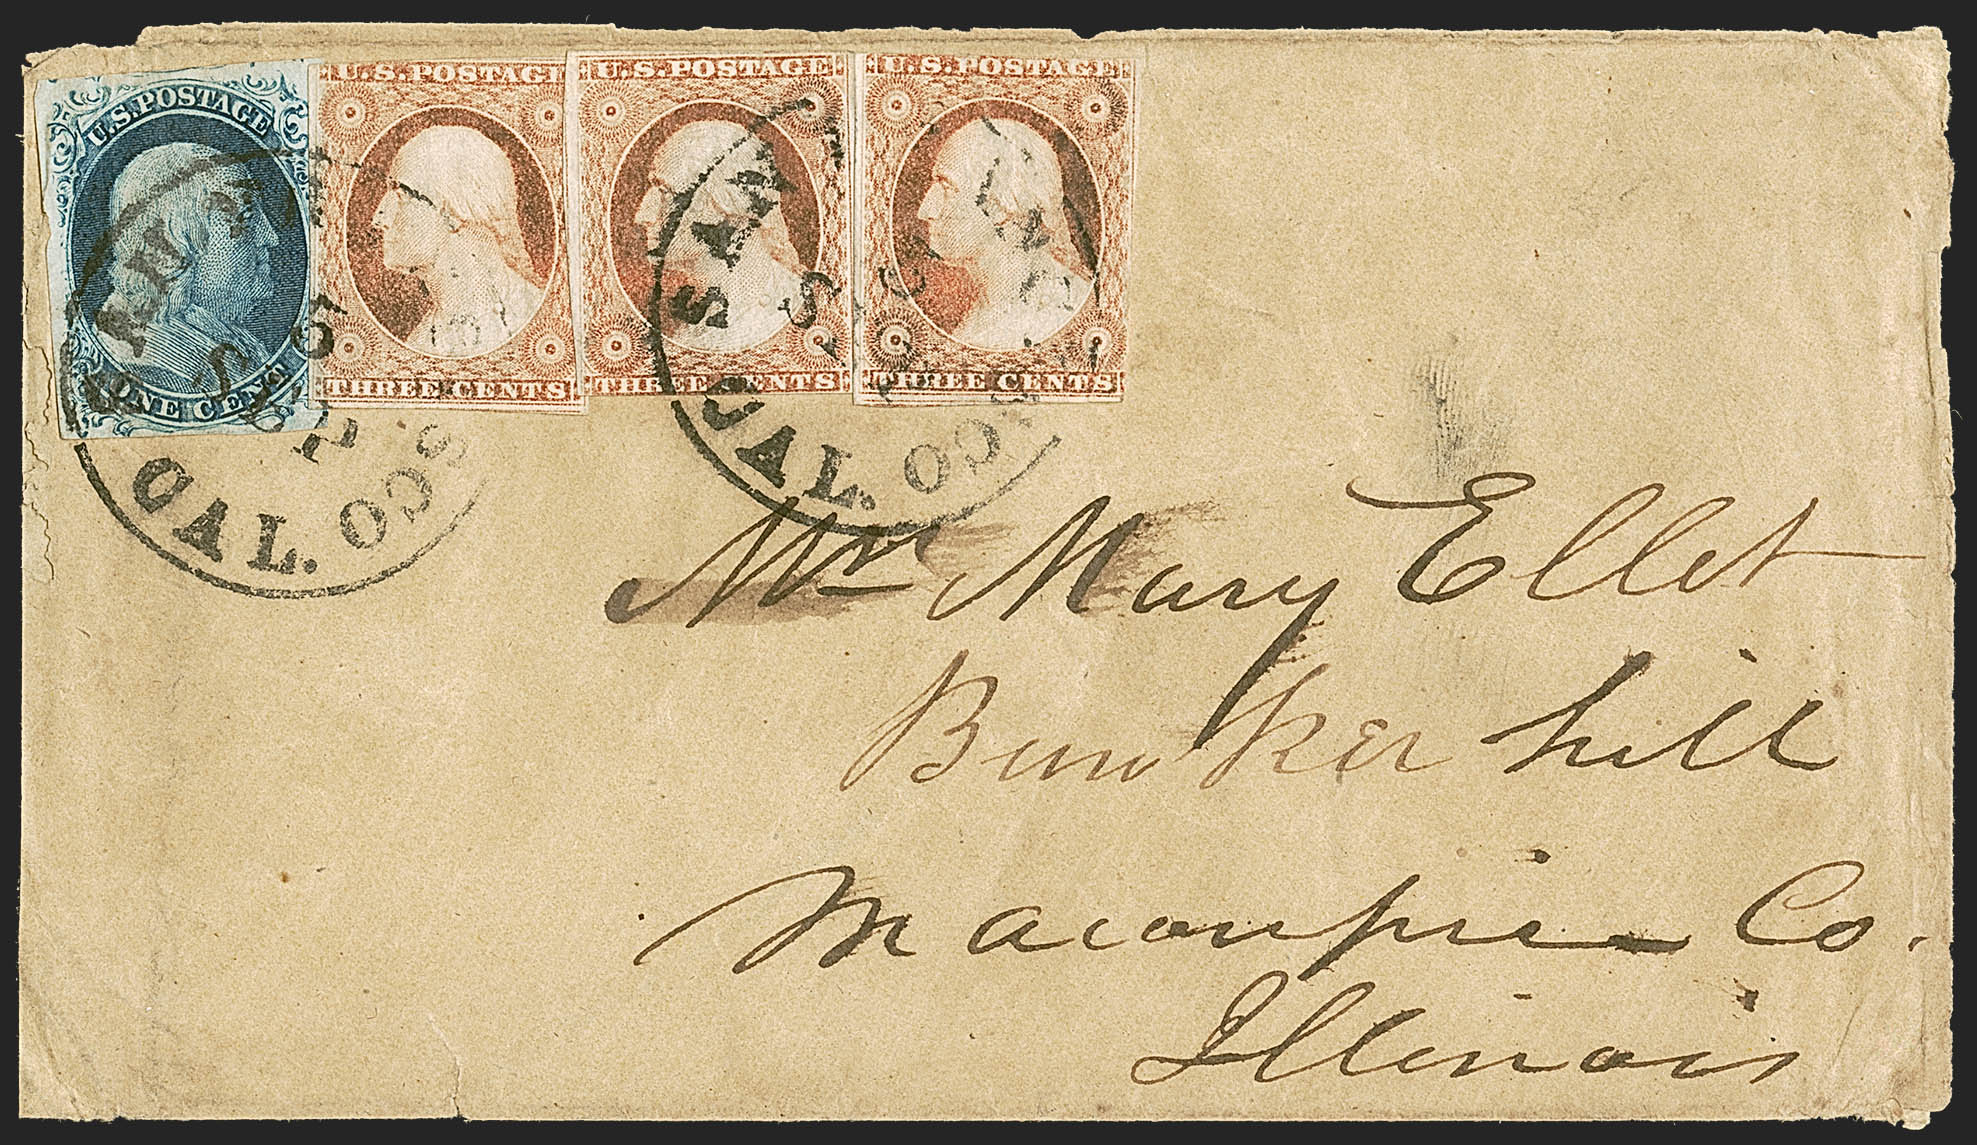 U.S. POSTAGE
ONE CENT
U.S. POSTAGE
THREE CENTS
U.S. POSTAGE
THREE CENTS
U.S. POSTAGE
THREE CENTS
CAL.
SAN
CAL.
Mrs Mary Ellet
Bunker hill
Macoupin Co.
Illinois